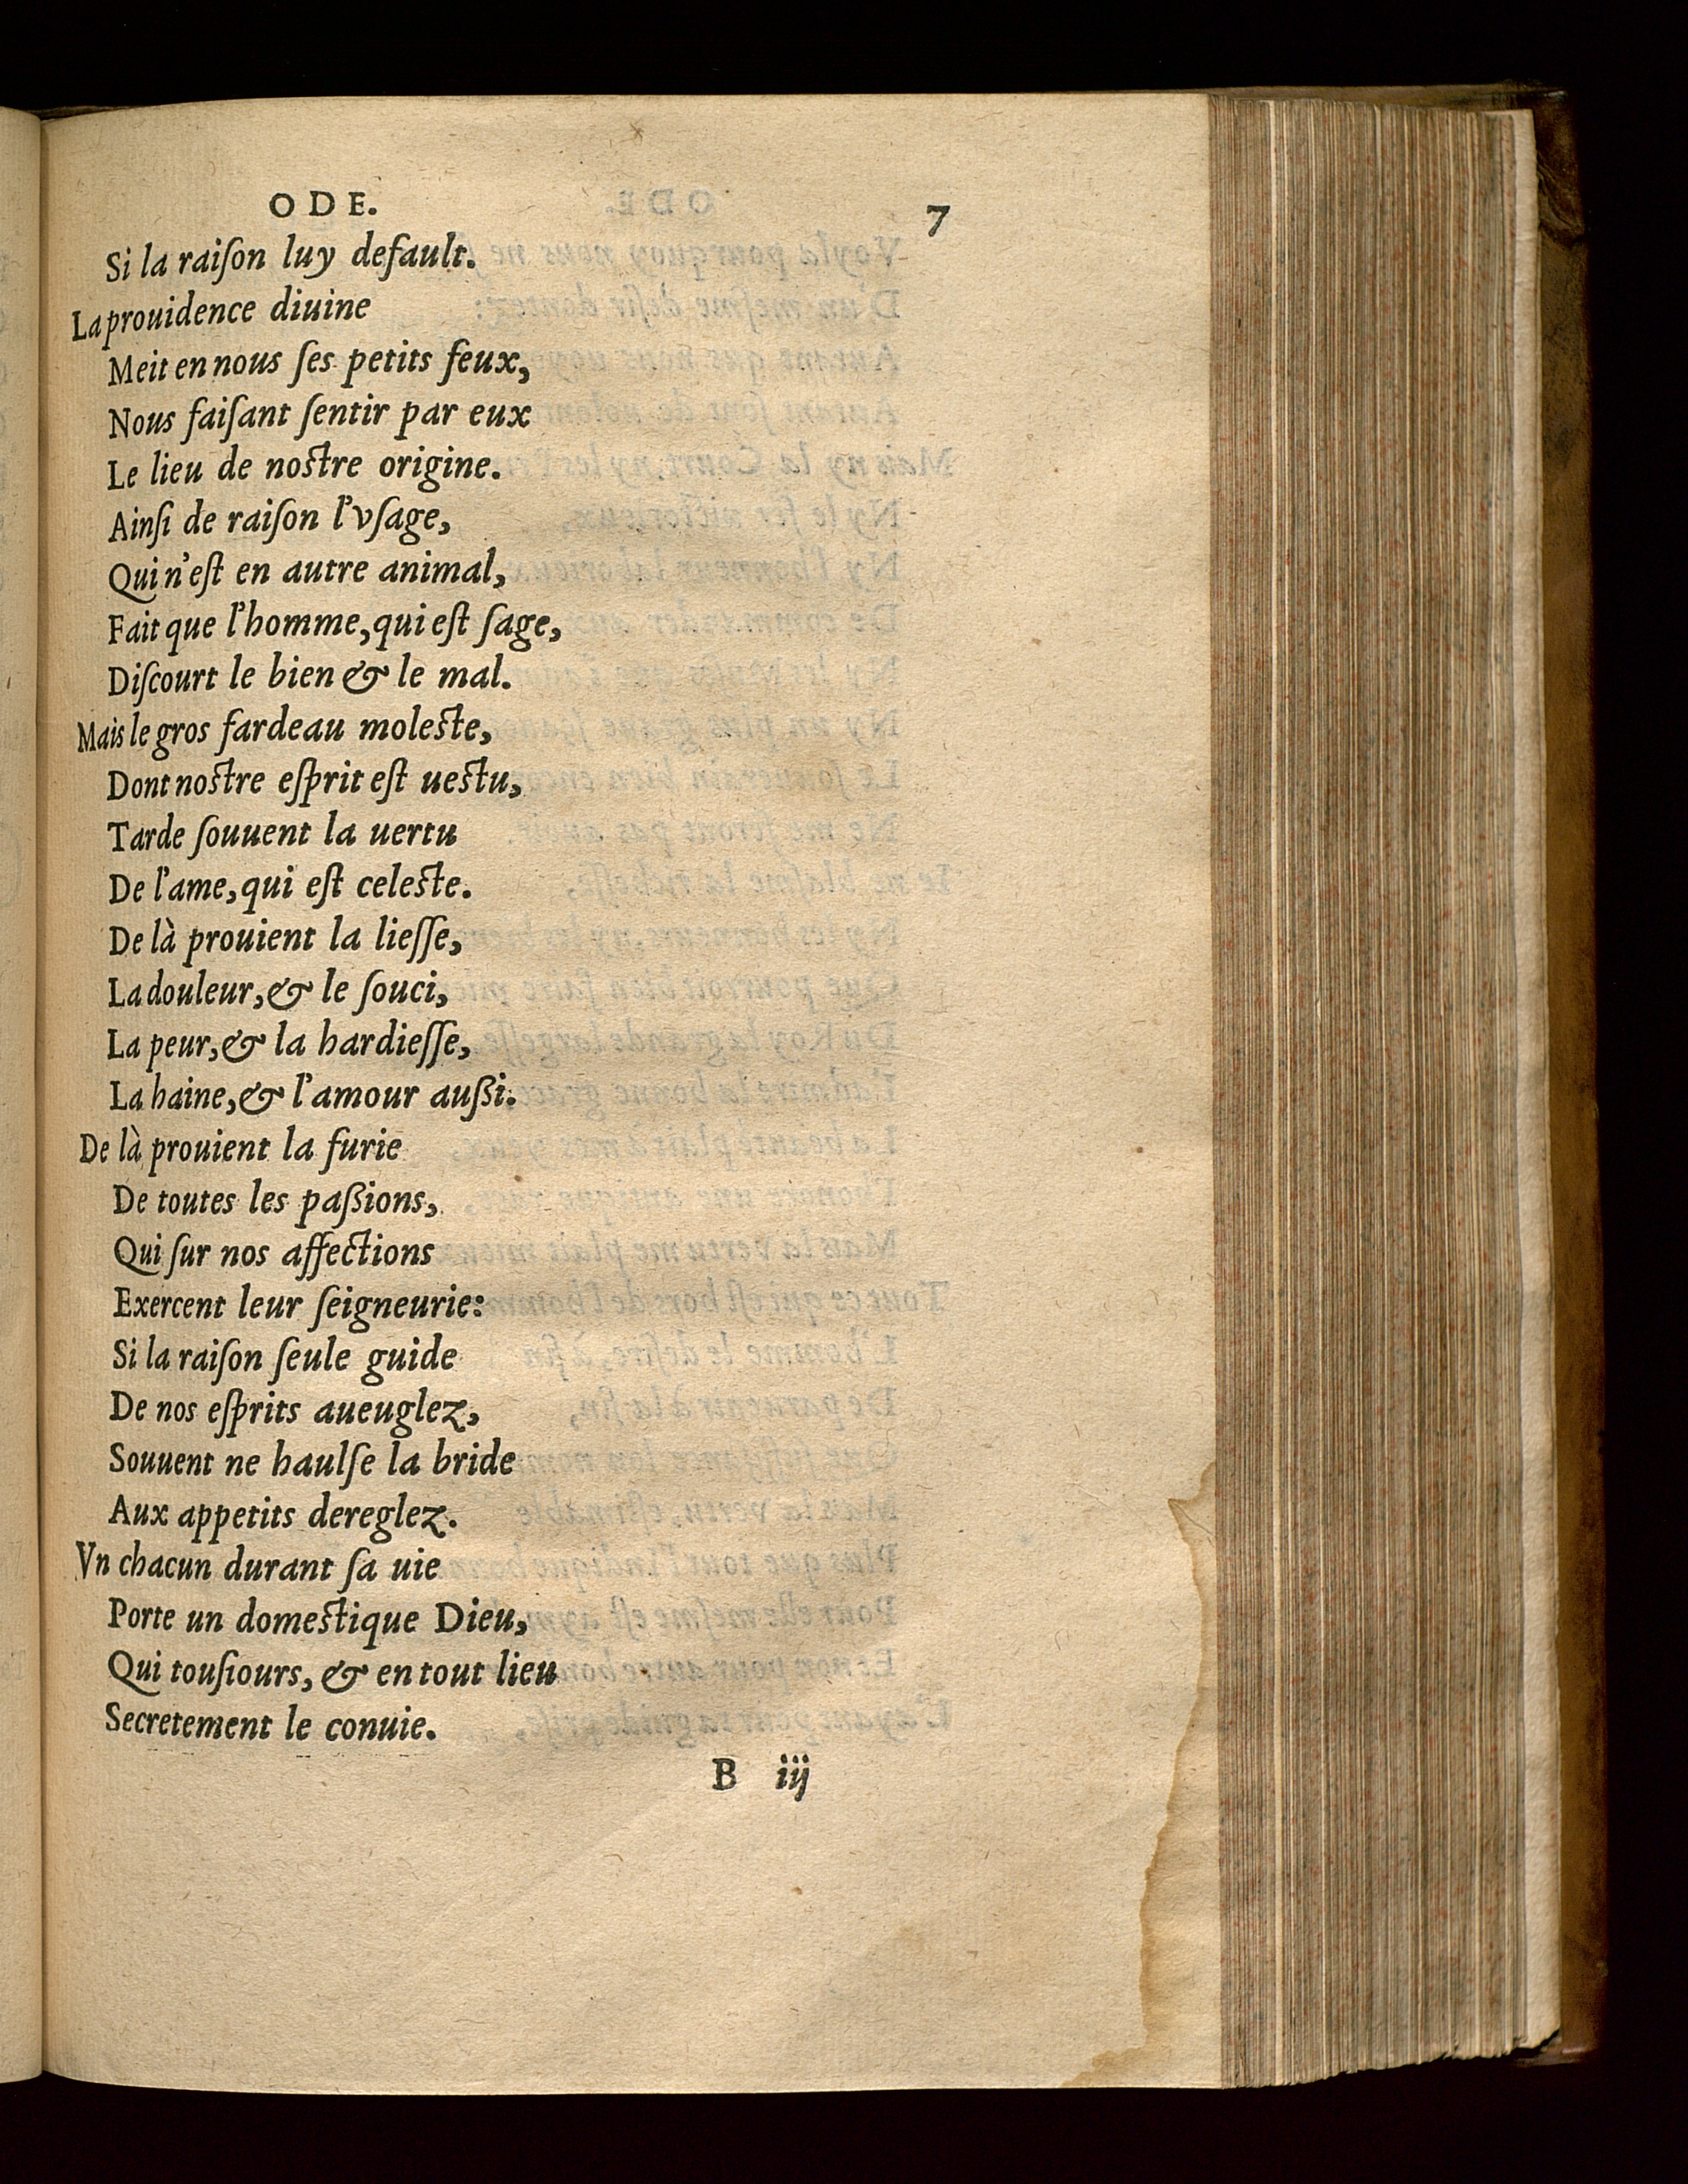 ODE. 7
Si la raiſon luy default.
La prouidence diuine
Meit en nous ſes petits feux,
Nous faiſant ſentir par eux
Le lieu de noſtre origine.
Ainſi de raiſon l'vſage,
Qui n'eſt en autre animal,
Fait que l'homme, qui eſt ſage,
Diſcourt le bien & le mal.
Mais le gros fardeau moleſte,
Dont noſtre eſprit eſt ueſtu,
Tarde ſouuent la uertu
De l'ame, qui eſt celeſte.
De là prouient la lieſſe,
La douleur, & le ſouci,
La peur, & la hardieſſe,
La haine, & l'amour außi.
De là prouient la furie
De toutes les paßions,
Qui ſur nos affections
Exercent leur ſeigneurie:
Si la raiſon ſeule guide
De nos eſprits aueuglez,
Souuent ne haulſe la bride
Aux appetits dereglez.
Vn chacun durant ſa uie
Porte un domeſtique Dieu,
Qui touſiours, & en tout lieu
Secretement le conuie.
B iij